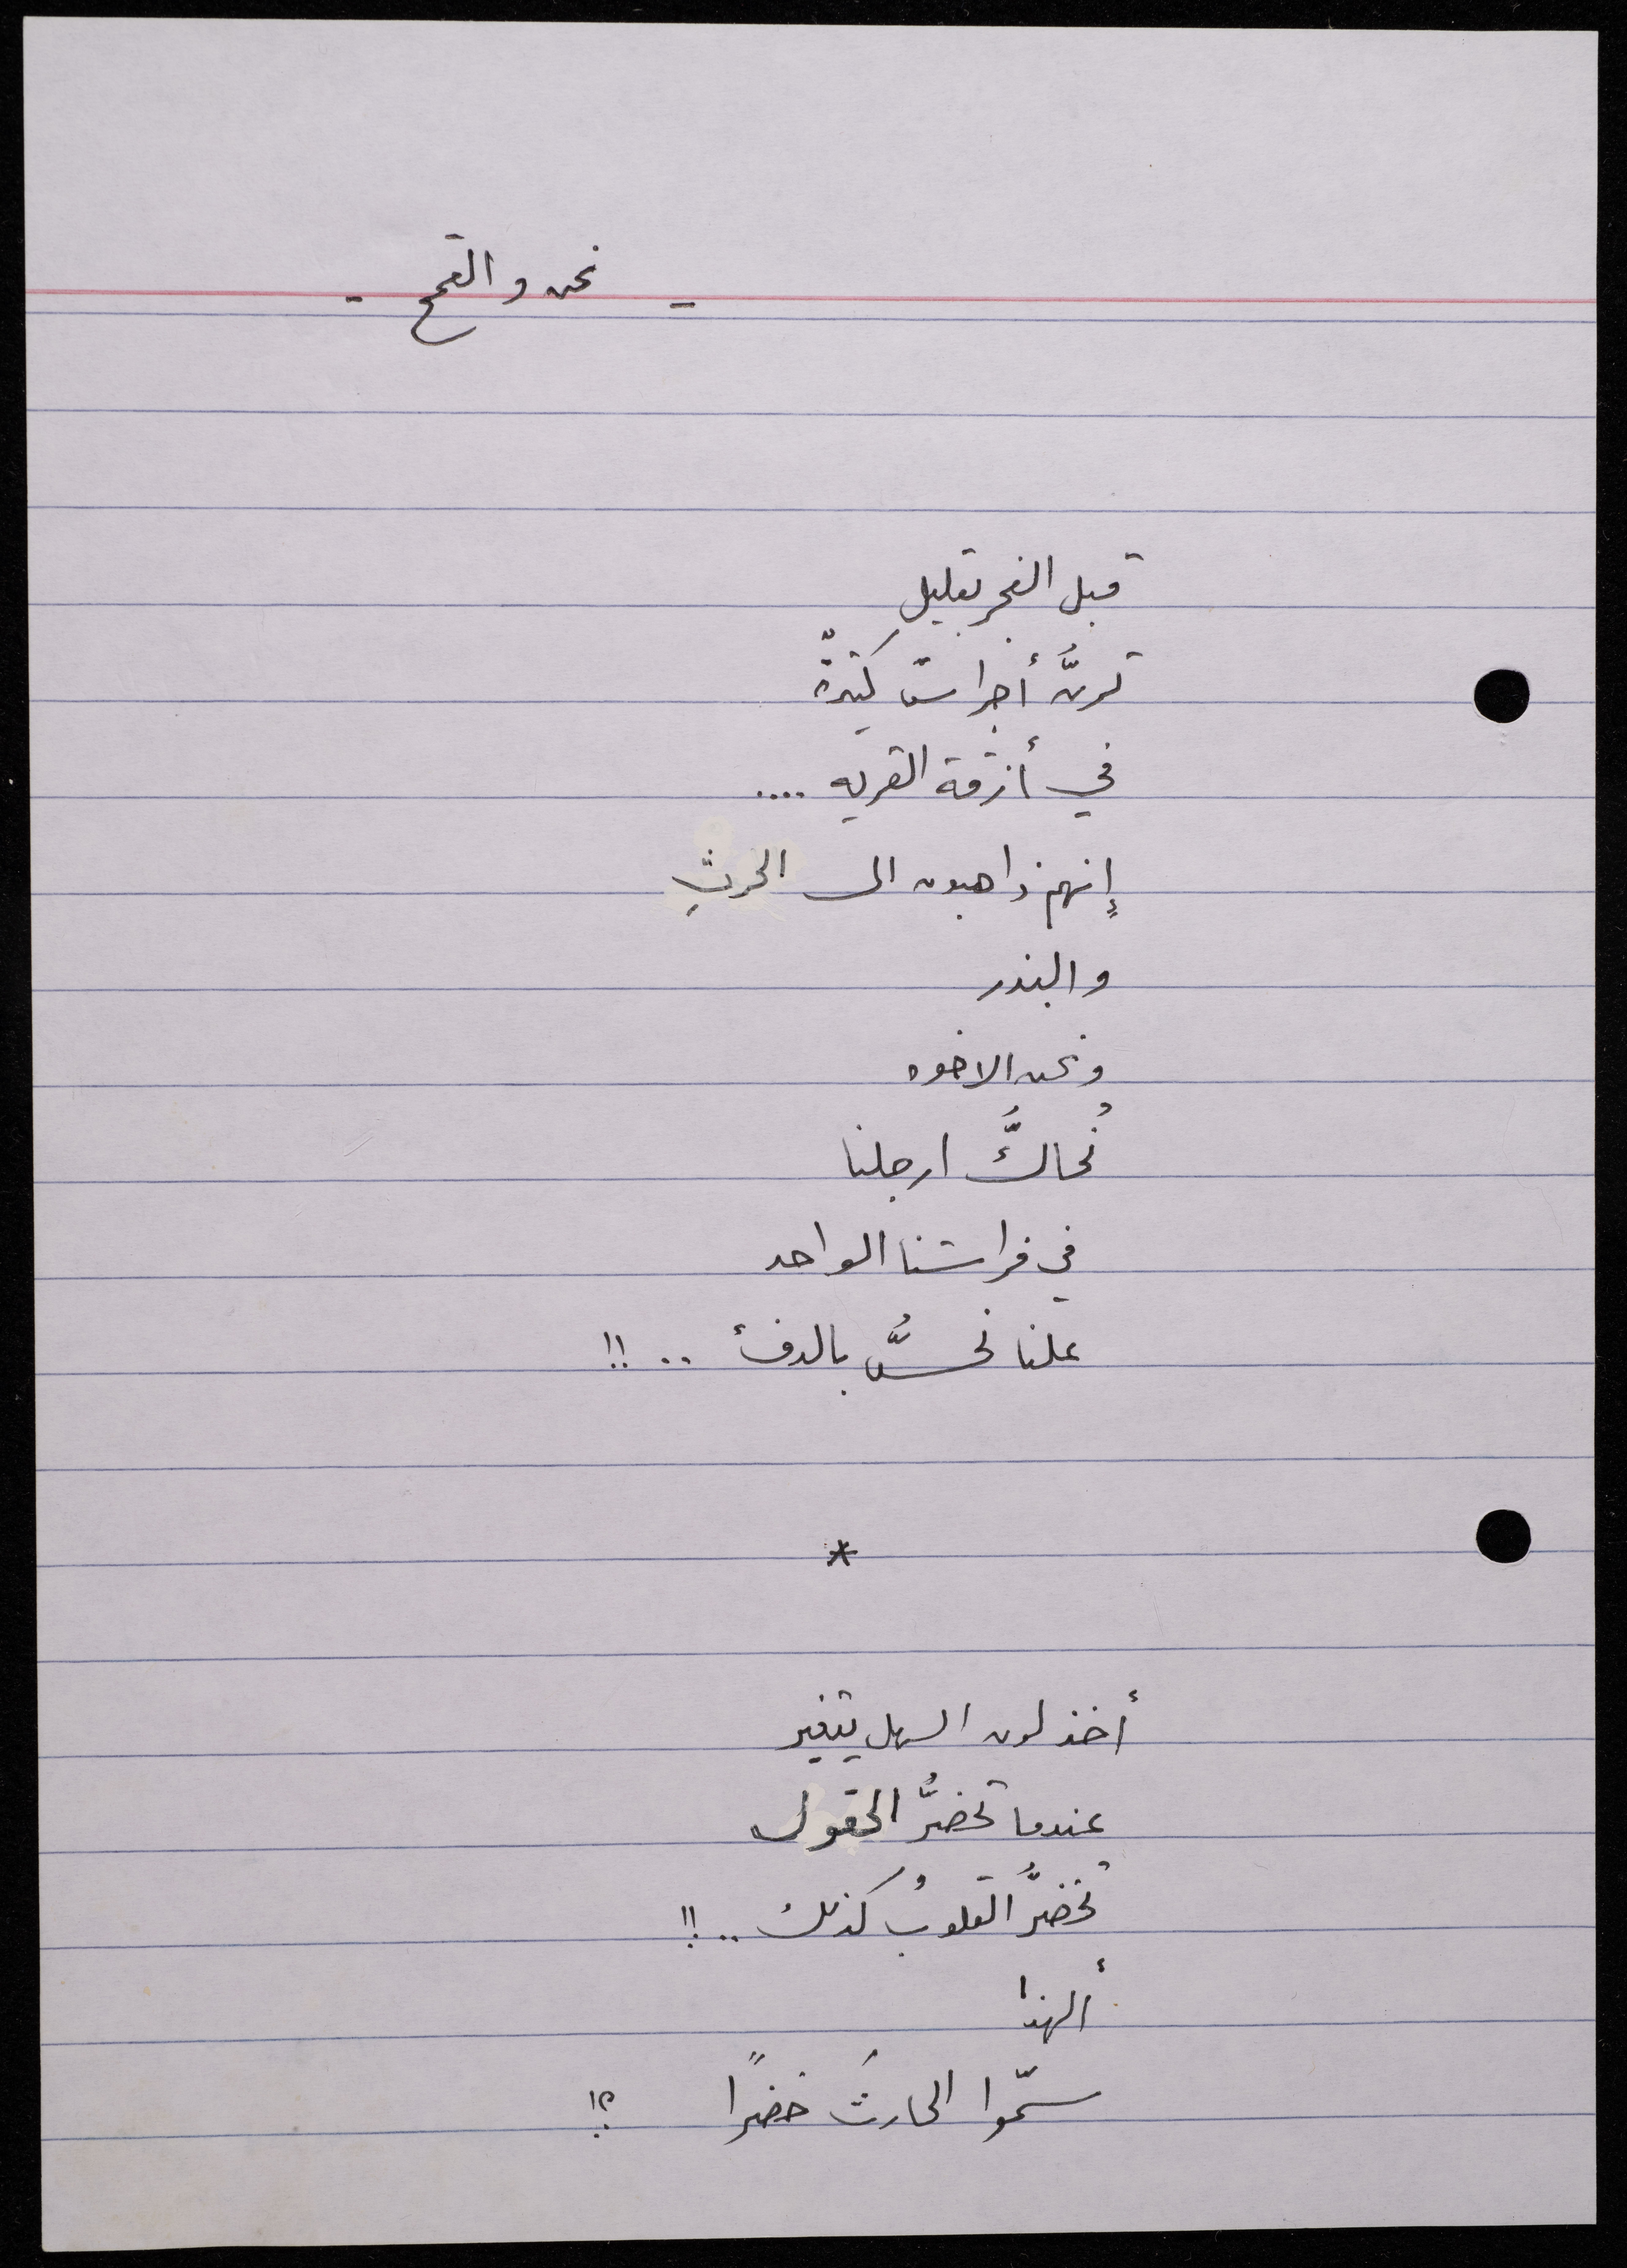 - نحن والقمح -
قبل الفجر بقليلٍ
ترنُّ أجراسٌ كثيرةٌ
في أزقة القريه ....
إنهم ذاهبون الى الحرثِ
والبذر
ونحن الاخوه
نُحاكُّ ارجلنا
في فراشنا الواحد
علنا نحسُّ بالدفأ .. !!
*
أخذ لون السهل يتغير
عندما تخضرُّ الحقول
تخضرُّ القلوبُ كذلك .. !!
ألهذا
سمّوا الحارثَ خضرًا ؟!